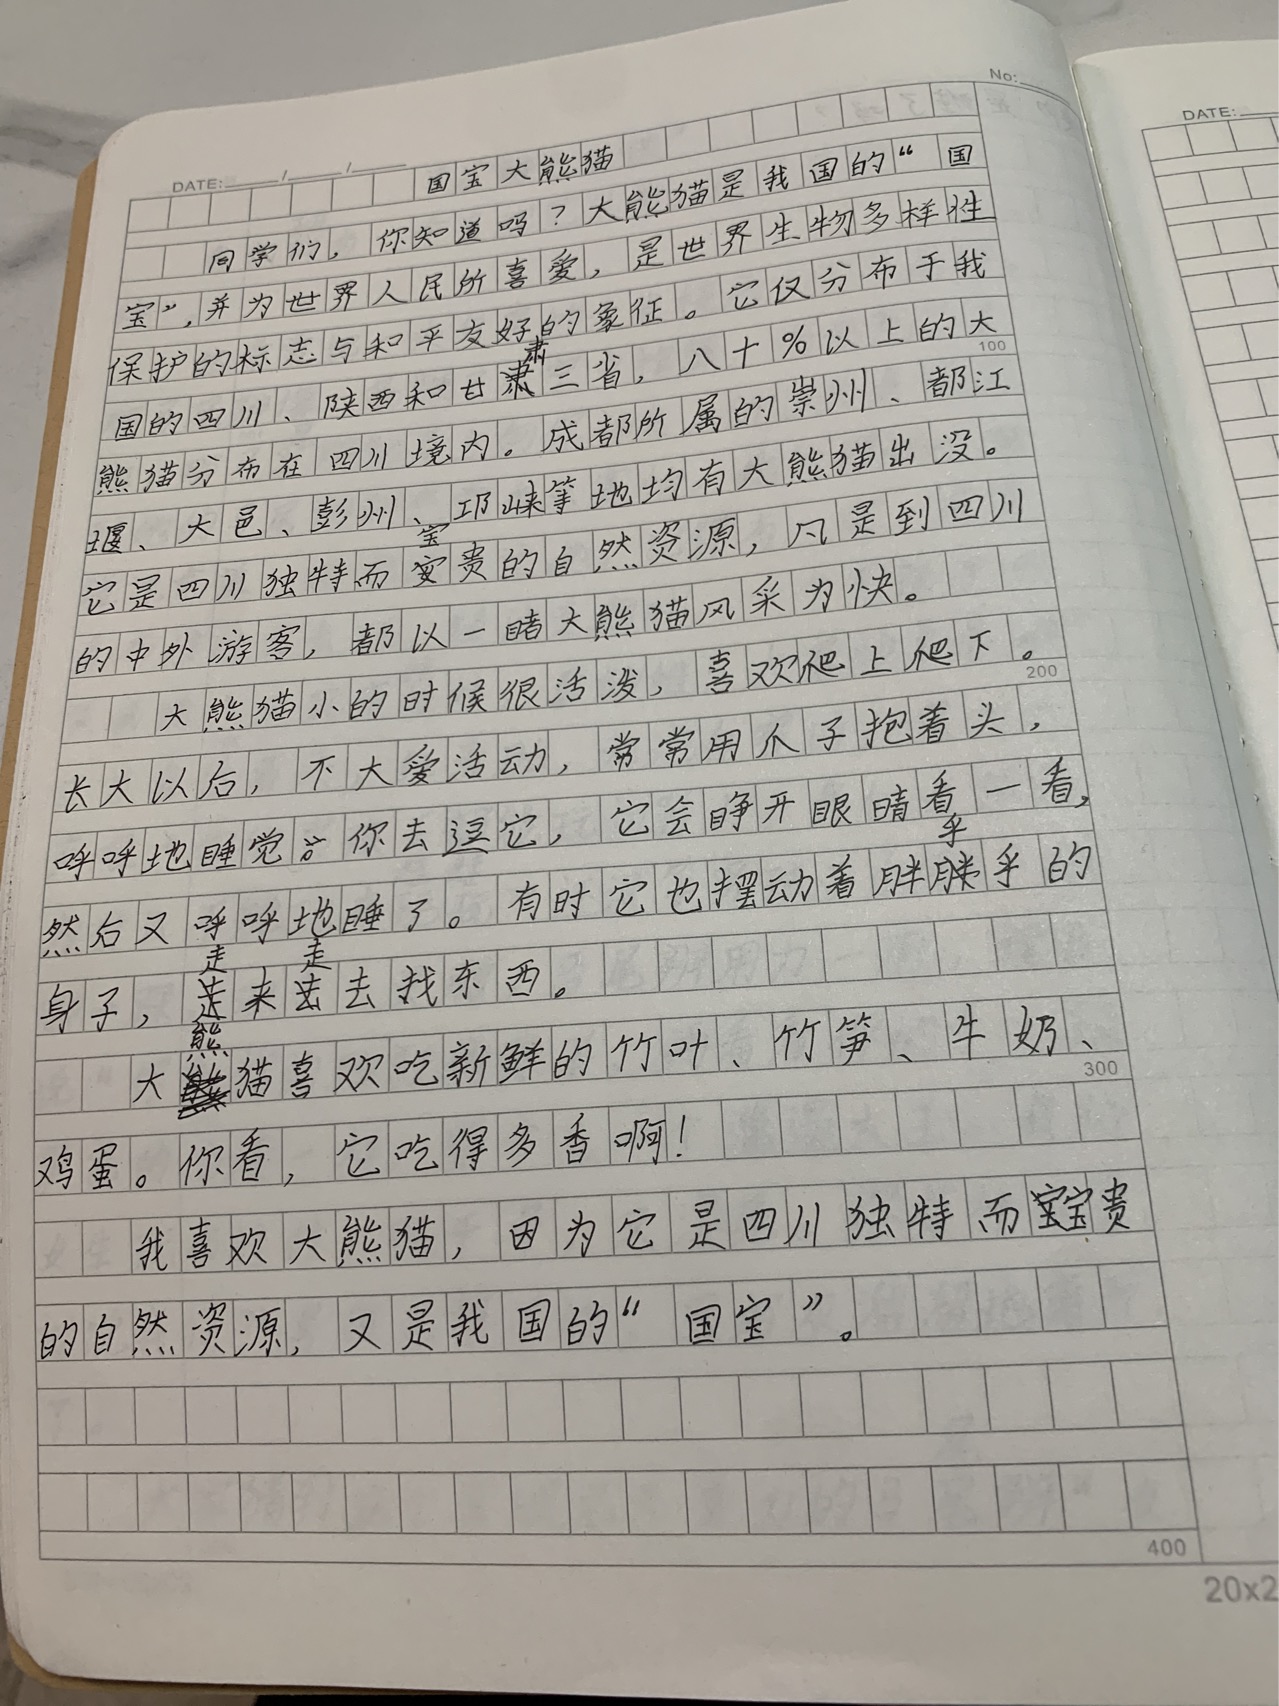 No:
DATE: / /
DATE:
国宝大熊猫
同学们，你知道吗？大熊猫是我国的“国
宝”，并为世界人民所喜爱，是世界生物多样性
保护的标志与和平友好的象征。它仅分布于我
国的四川、陕西和甘肃三省，八十%以上的大
100
熊猫分布在四川境内。成都所属的崇州、都江
堰、大邑、彭州、邛崃等地均有大熊猫出没。
它是四川独特而宝贵的自然资源，凡是到四川
的中外游客，都以一睹大熊猫风采为快。
大熊猫小的时候很活泼，喜欢爬上爬下。
200
长大以后，不大爱活动，常常用爪子抱着头，
呼呼地睡觉。你去逗它，它会睁开眼睛看一看，
然后又呼呼地睡了。有时它也摆动着胖胖乎的
身子，走来走去找东西。
大熊猫喜欢吃新鲜的竹叶、竹笋、牛奶、
300
鸡蛋。你看，它吃得多香啊！
我喜欢大熊猫，因为它是四川独特而宝贵
的自然资源，又是我国的“国宝”。
400
20x2